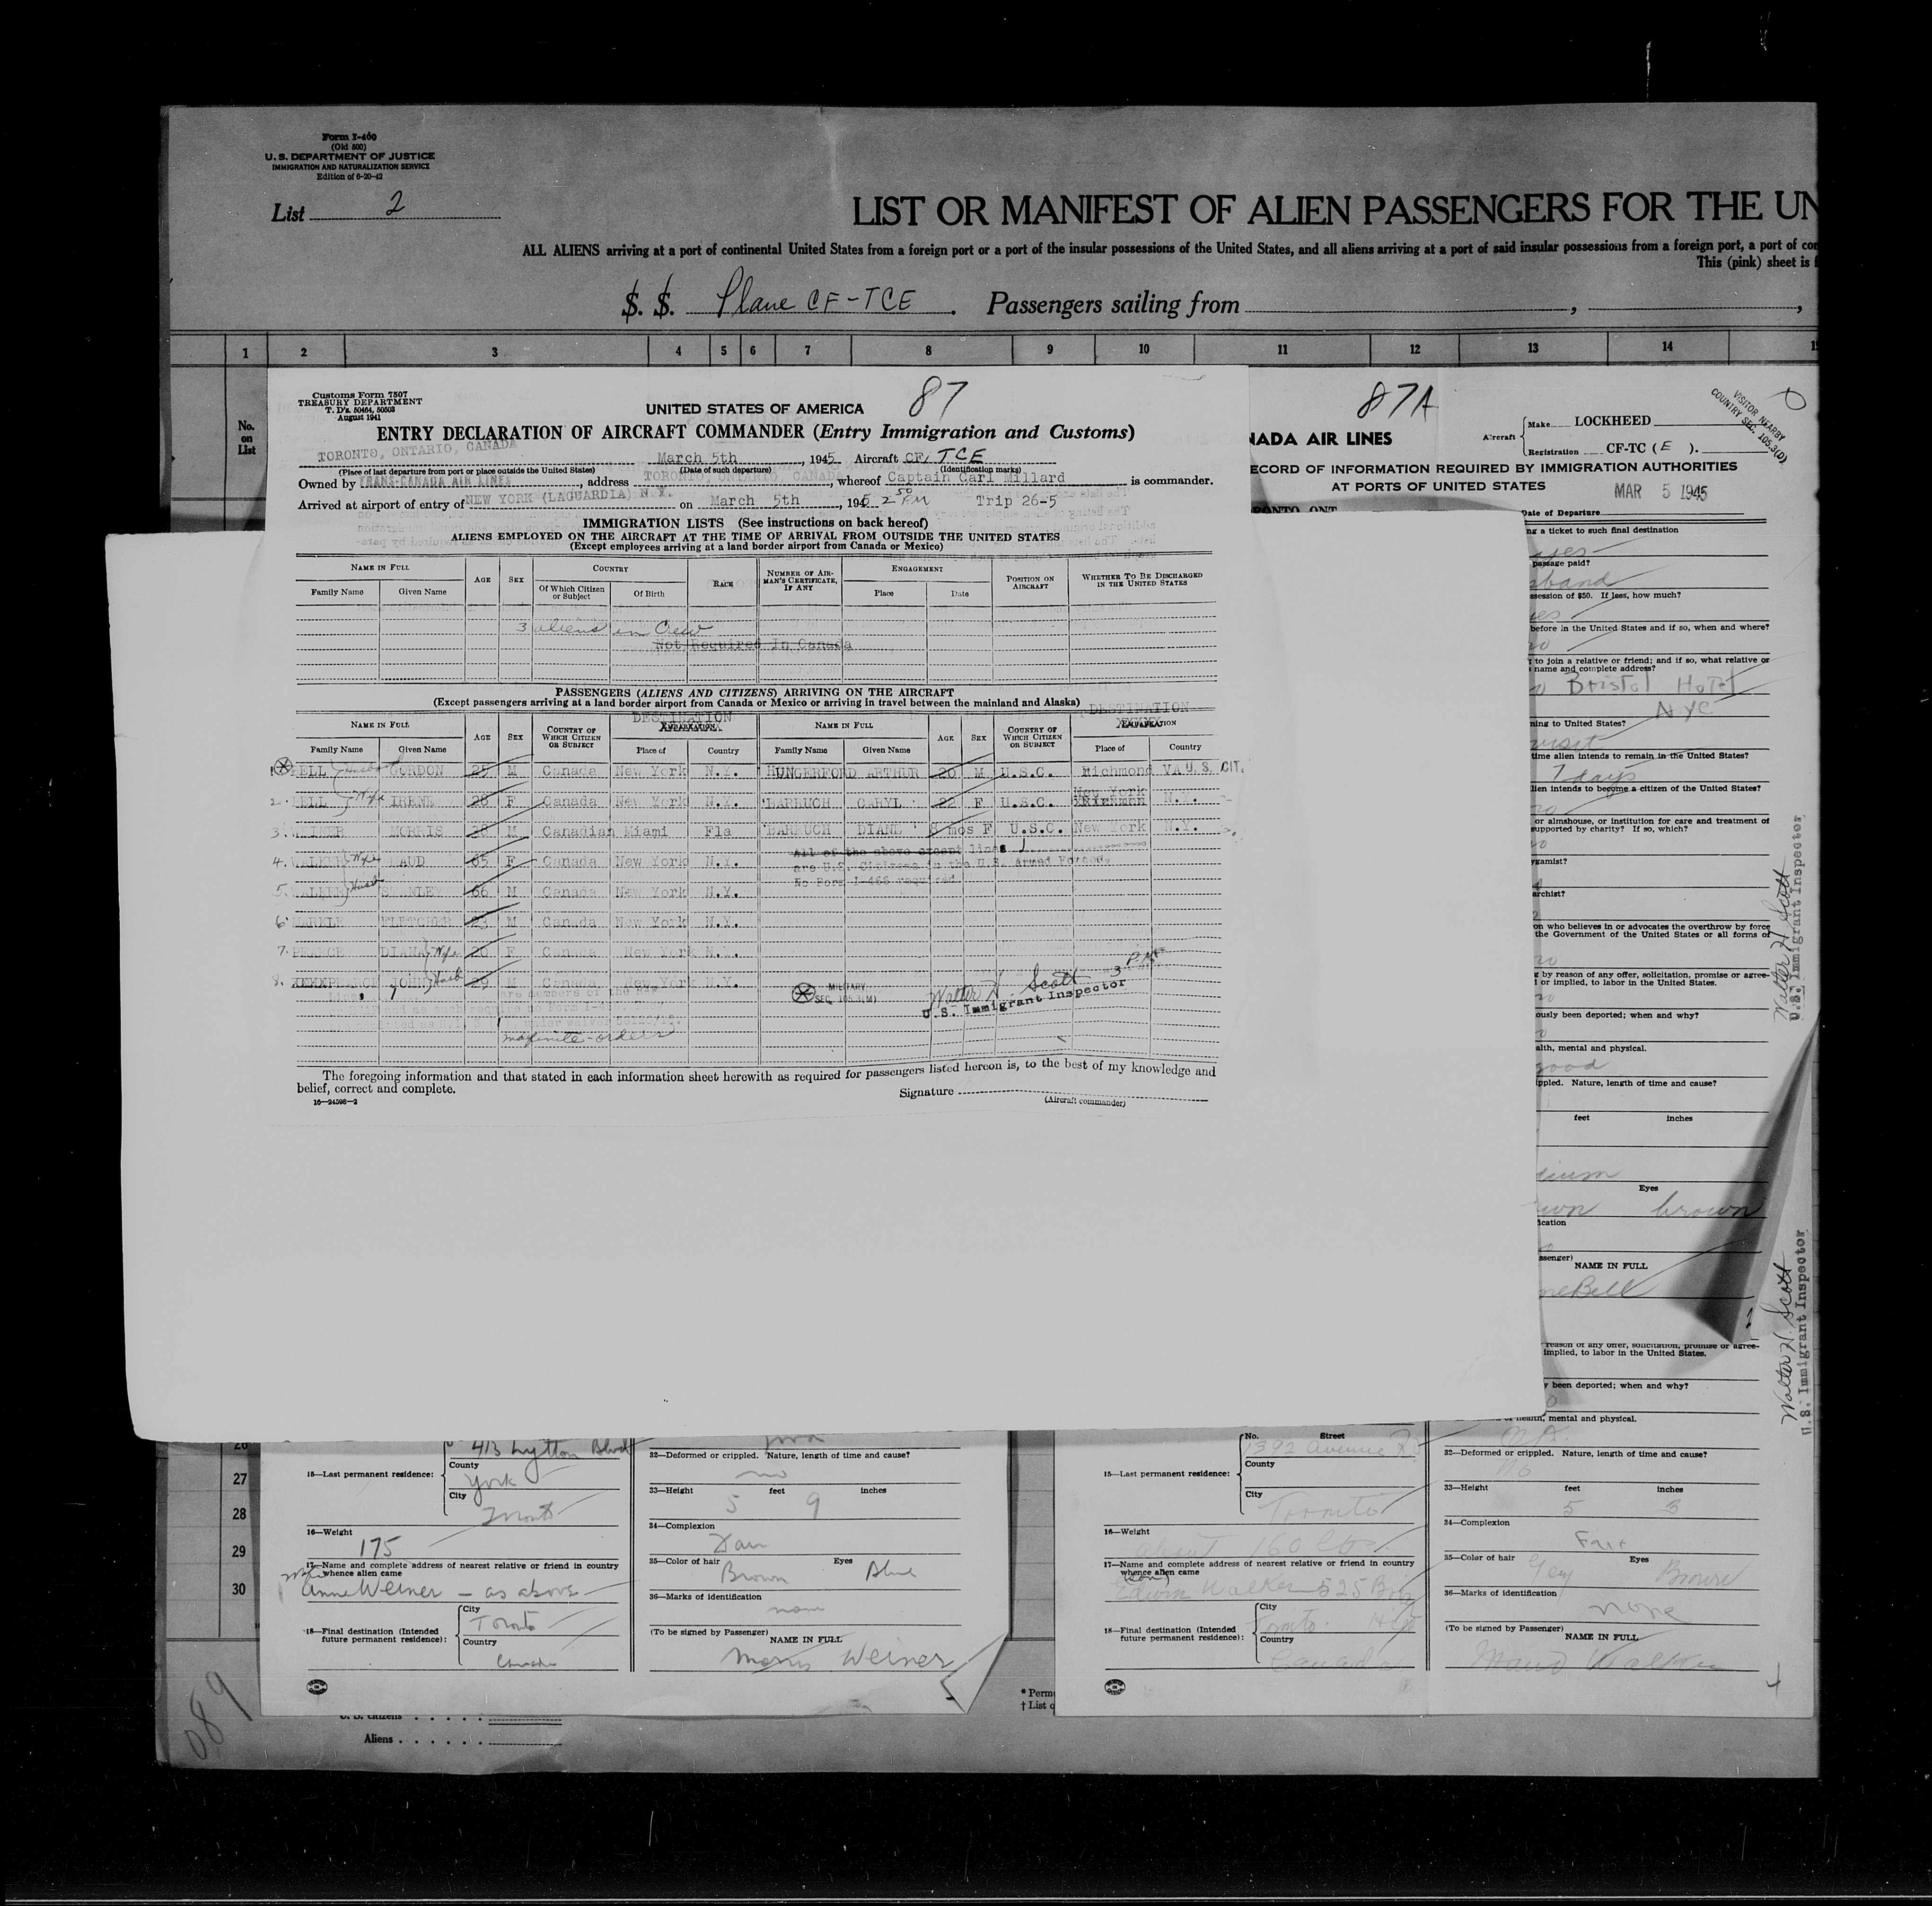 Form I-460
(Old 500)
U. S. DEPARTMENT OF JUSTICE
IMMIGRATION AND NATURALIZATION SERVICE
Edition of 6-20-42
List 2
LIST OR MANIFEST OF ALIEN PASSENGERS FOR THE UN
ALL ALIENS arriving at a port of continental United States from a foreign port or a port of the insular possessions of the United States, and all aliens arriving at a port of said insular possessions from a foreign port, a port of con
This (pink) sheet is f
S. S. Plane CF-TCE . Passengers sailing from , ,
1 2 3 4 5 6 7 8 9 10 11 12 13 14 1
No. on List
Customs Form 7507
TREASURY DEPARTMENT
T. D's. 50464, 50503
August 1941
UNITED STATES OF AMERICA
87
ENTRY DECLARATION OF AIRCRAFT COMMANDER (Entry Immigration and Customs)
TORONTO, ONTARIO, CANADA March 5th , 1945 Aircraft CF, TCE
(Place of last departure from port or place outside the United States) (Date of such departure) (Identification marks)
Owned by TRANS-CANADA AIR LINES , address TORONTO, ONTARIO, CANADA , whereof Captain Carl Millard is commander.
Arrived at airport of entry of NEW YORK (LAGUARDIA) N.Y. on March 5th , 1945 2 50 PM Trip 26-5
IMMIGRATION LISTS (See instructions on back hereof)
ALIENS EMPLOYED ON THE AIRCRAFT AT THE TIME OF ARRIVAL FROM OUTSIDE THE UNITED STATES
(Except employees arriving at a land border airport from Canada or Mexico)
NAME IN FULL AGE SEX COUNTRY RACE NUMBER OF AIRMAN'S CERTIFICATE, IF ANY ENGAGEMENT POSITION ON AIRCRAFT WHETHER TO BE DISCHARGED IN THE UNITED STATES
Family Name Given Name Of Which Citizen or Subject Of Birth Place Date
3 aliens in Crew
Not Required In Canada
PASSENGERS (ALIENS AND CITIZENS) ARRIVING ON THE AIRCRAFT
(Except passengers arriving at a land border airport from Canada or Mexico or arriving in travel between the mainland and Alaska)
DESTINATION DESTINATION
NAME IN FULL AGE SEX COUNTRY OF WHICH CITIZEN OR SUBJECT EMBARKATION NAME IN FULL AGE SEX COUNTRY OF WHICH CITIZEN OR SUBJECT EMBARKATION
Family Name Given Name Place of Country Family Name Given Name Place of Country
1 BELL Husb GORDON 25 M Canada New York N.Y. HUNGERFORD ARTHUR 20 M U.S.C. Richmond VA U.S. CIT.
2. BELL Wife IRENE 28 F Canada New York N.Y. BARRUCH CARYL 22 F U.S.C. New York N.Y.
3 WEINER MORRIS 38 M Canadian Miami Fla BARRUCH DIANE 8 mos F U.S.C. New York N.Y.
4. WALKER Wife MAUD 65 F Canada New York N.Y. All of the above except lines 1
are U.S. Citizens in the U.S. Armed Forces.
5. WALKER Husb STANLEY 66 M Canada New York N.Y. No Form I-466 required
6 MARKLE FLETCHER 23 M Canada New York N.Y.
7. PEARCE DIANA Wife 26 F Canada New York N.Y.
8. PEARCE JOHN Husb 29 M Canada New York N.Y.
are members of the
MILITARY
SEC.
Walter H. Scott 3 P.M
U.S. Immigrant Inspector
orders
The foregoing information and that stated in each information sheet herewith as required for passengers listed hereon is, to the best of my knowledge and
belief, correct and complete.
16—24598-2
Signature
(Aircraft commander)
87A
VISITOR NEARBY
COUNTRY SEC. 105.3(D)
NADA AIR LINES
Aircraft Make LOCKHEED
Registration CF-TC ( E ).
ECORD OF INFORMATION REQUIRED BY IMMIGRATION AUTHORITIES
AT PORTS OF UNITED STATES
MAR 5 1945
RONTO, ONT
Date of Departure
ng a ticket to such final destination
yes
passage paid?
sband
ssession of $50. If less, how much?
yes
before in the United States and if so, when and where?
no
to join a relative or friend; and if so, what relative or
name and complete address?
Bristol Hotel
NYC
ming to United States?
visit
time alien intends to remain in the United States?
7 days
lien intends to become a citizen of the United States?
no
or almshouse, or institution for care and treatment of
supported by charity? If so, which?
no
ygamist?
archist?
on who believes in or advocates the overthrow by force
the Government of the United States or all forms of
no
g by reason of any offer, solicitation, promise or agree-
l or implied, to labor in the United States.
no
ously been deported; when and why?
alth, mental and physical.
good
ippled. Nature, length of time and cause?
feet inches
dium
Eyes
own brown
ication
ssenger)
NAME IN FULL
ne Bell
Walter H Scott
U.S. Immigrant Inspector
reason of any offer, solicitation, promise or agree-
implied, to labor in the United States.
y been deported; when and why?
health, mental and physical.
Walter H. Scott
U.S. Immigrant Inspector
26
27
28
29
30
413 Lytton Blvd
15—Last permanent residence:
County
York
City
Toronto
16—Weight
175
17—Name and complete address of nearest relative or friend in country
whence alien came
wife
Anne Weiner — as above
18—Final destination (Intended
future permanent residence):
City
Toronto
Country
Canada
good
32—Deformed or crippled. Nature, length of time and cause?
no
33—Height feet inches
5 9
34—Complexion
35—Color of hair Eyes
Brown Blue
36—Marks of identification
none
(To be signed by Passenger)
NAME IN FULL
Morris Weiner
No. Street
1392 Avenue Rd
15—Last permanent residence:
County
City
Toronto
16—Weight
about 160 lbs.
17—Name and complete address of nearest relative or friend in country
whence alien came
(son)
Edwin Walker 525 Bri
18—Final destination (Intended
future permanent residence):
City
Toronto.
Country
Canada
32—Deformed or crippled. Nature, length of time and cause?
No
33—Height feet inches
5 3
34—Complexion
Fair
35—Color of hair Eyes
Grey Brown
36—Marks of identification
none
(To be signed by Passenger)
NAME IN FULL
Maud Walker
* Perm
† List o
U. S. Citizens
Aliens
089